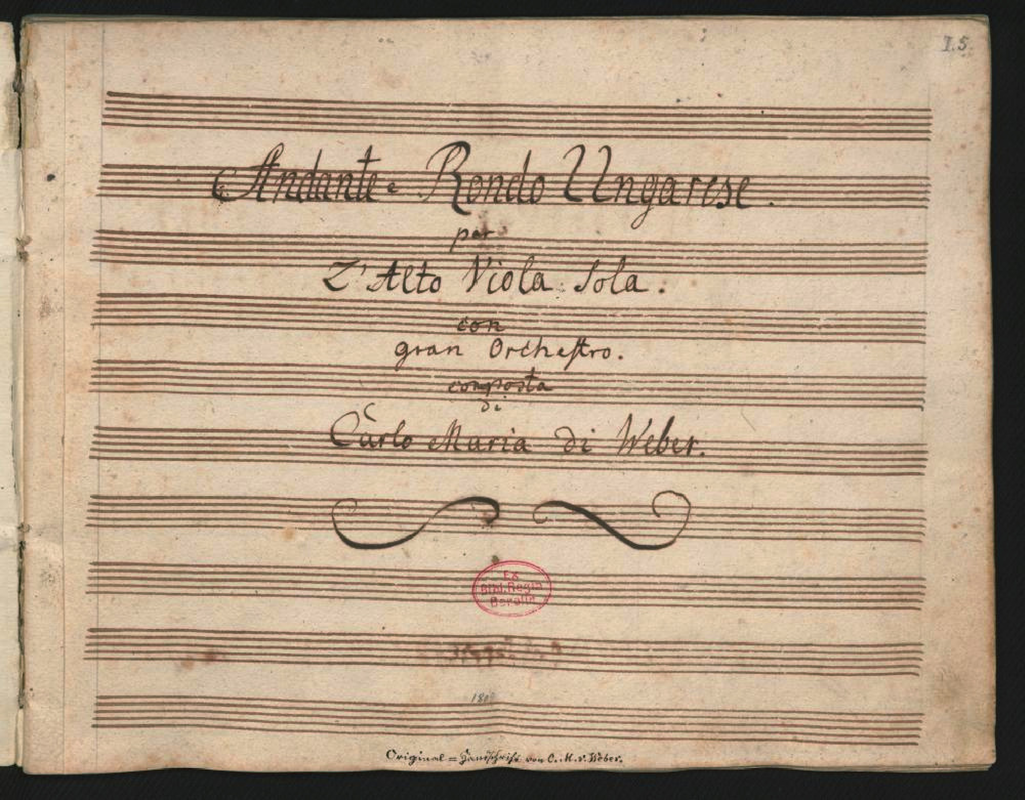 I.5.
Andante e Rondo Ungarese.
per
L'Alto Viola Sola.
con
gran Orchestro.
composta
di
Carlo Maria di Weber.
Ex
Bibl. Regia
Berolin.
Original = Handschrift von C. M. v. Weber.